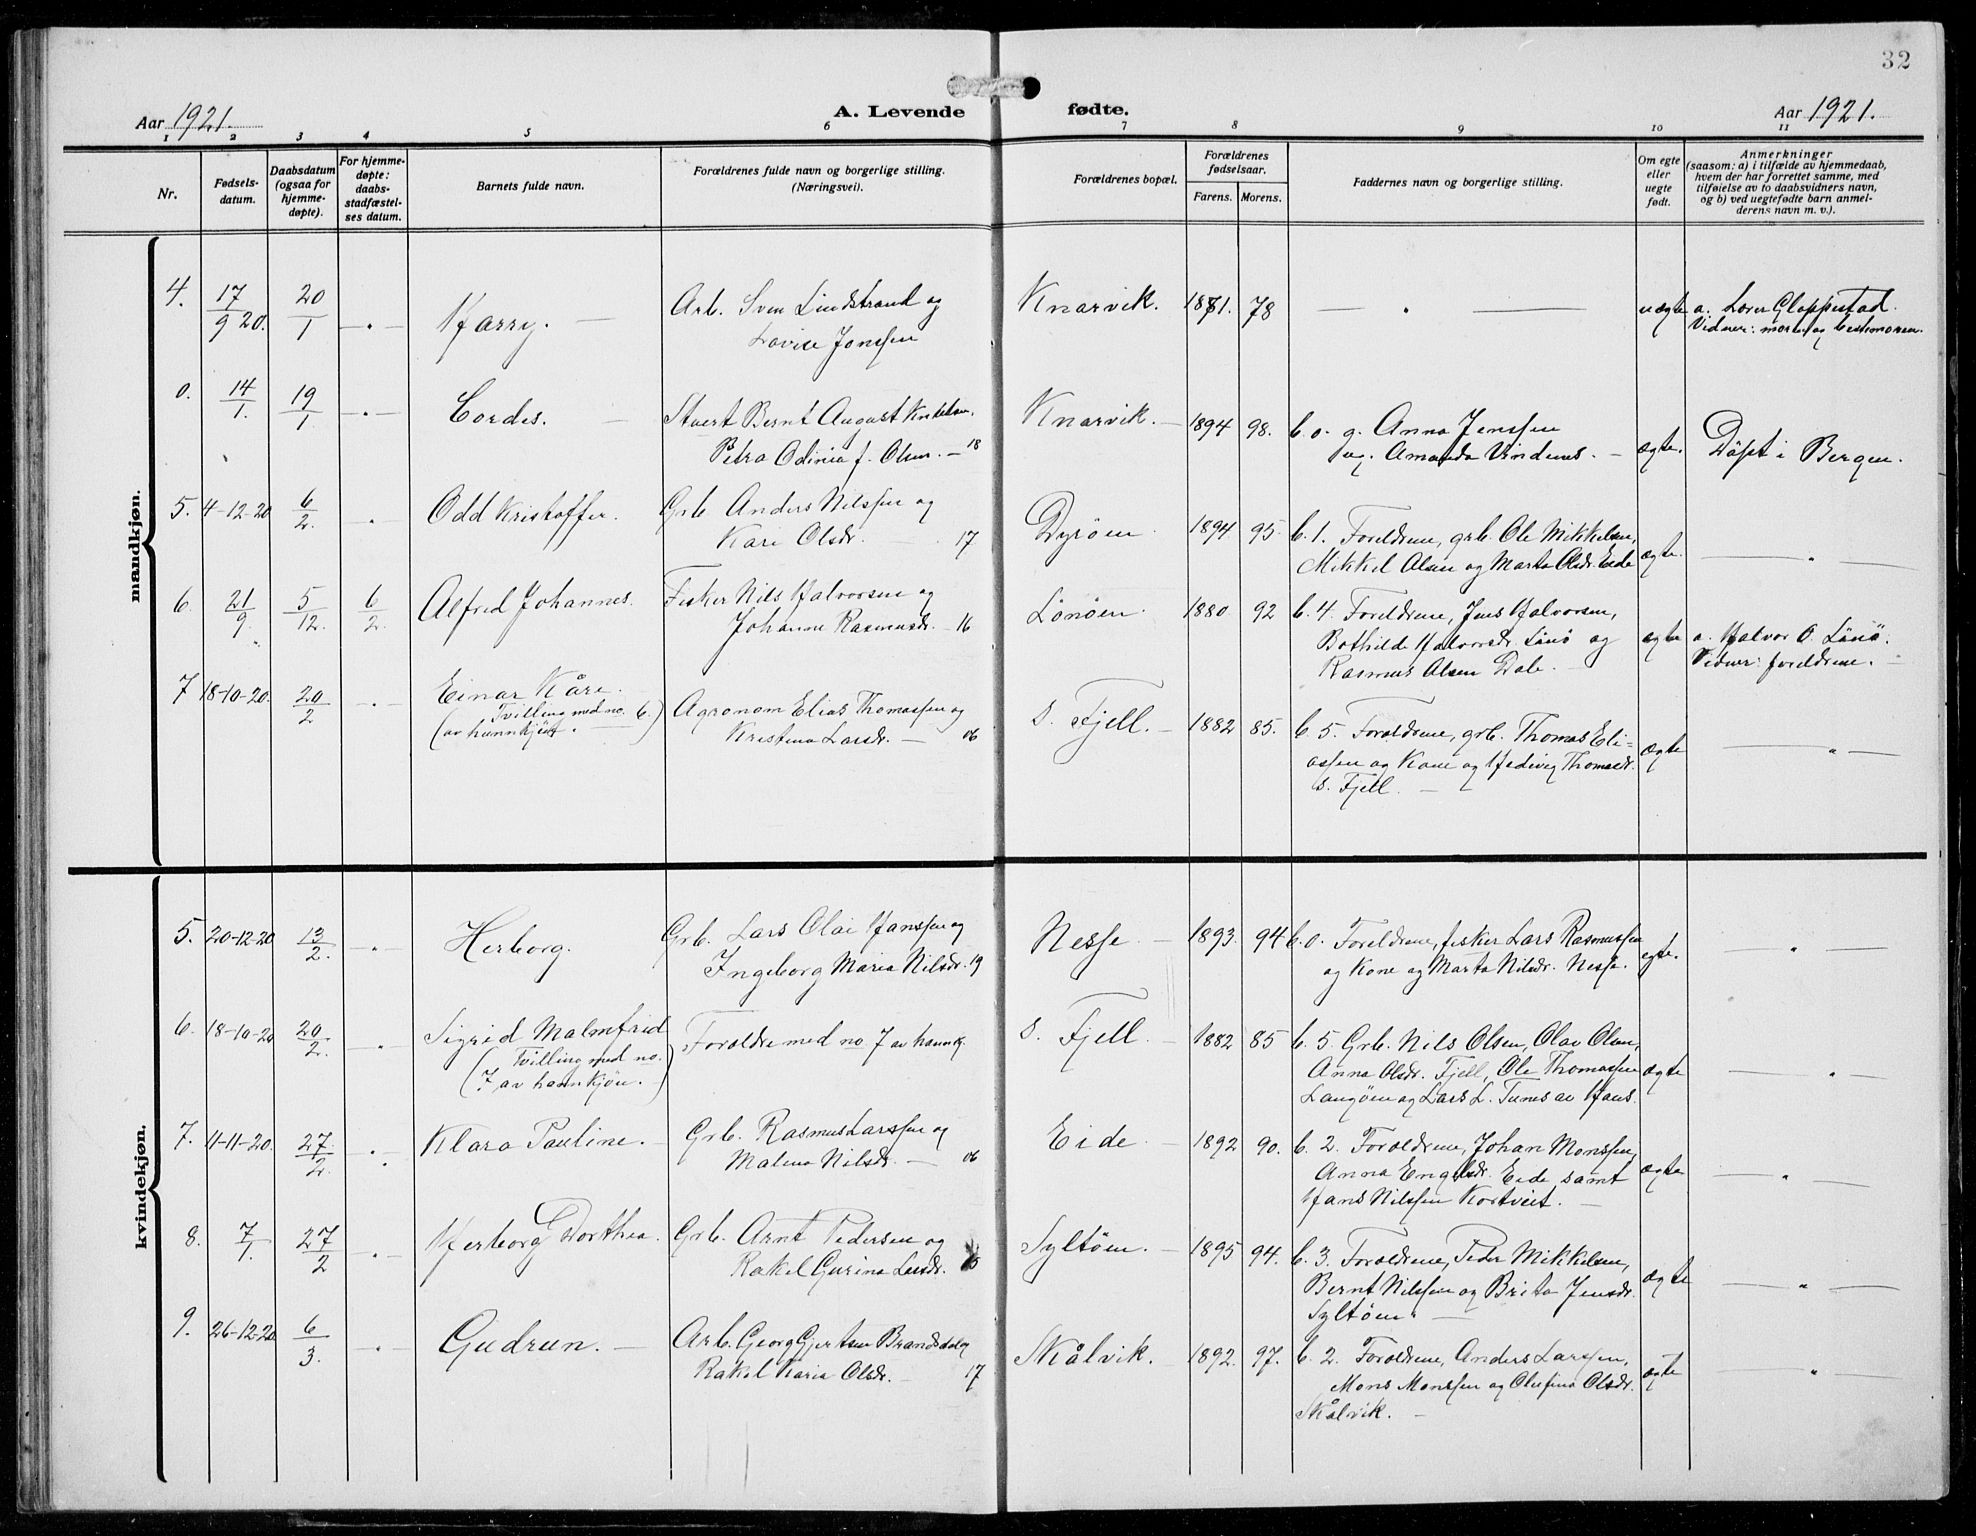 32
Aar 1921.
A. Levende fødte.
Aar 1921.
1 2 3 4 5 6 7 8 9 10 11
Nr.
Fødsels-
datum.
Daabsdatum
(ogsaa for
hjemme-
døpte).
For hjemme-
døpte:
daabs-
stadfæstel-
ses datum.
Barnets fulde navn.
Forældrenes fulde navn og borgerlige stilling.
(Næringsvei).
Forældrenes bopæl.
Forældrenes
fødselsaar.
Farens. Morens.
Faddernes navn og borgerlige stilling.
Om egte
eller
uegte
født.
Anmerkninger
(saasom: a) i tilfælde av hjemmedaab,
hvem der har forrettet samme, med
tilføielse av to daabsvidners navn,
og b) ved uegtefødte barn anmel-
derens navn m. v.).
mandkjøn.
4. 17/9 20. 20/1 — " — Harry. —
Arb. Sven Lindstrand og
Lovise Jonssen
Knarvik. 1871. 78 — " — uægte
a. Lærer Gloppestad.
Vidner: moren og bestemoren.
0. 14/1. 19/1 — " — Cordes. —
Stuert Bernt August Knudsen.
Petra Odinia f. Olsen. — 18
Knarvik. — 1894 98.
b. o. g. Anna Jenssen
ug. Amanda Vindenes. —
ægte. Döpt i Bergen.
5. 4-12-20 6/2. " Odd Kristoffer.
Grb Anders Nilssen og
Kari Olsdr. 17
Dyröen. 1894 95.
b. 1. Foreldrene, grb. Ole Mikkelsen,
Mikkel Olsen og Marta Olsdr. Eide
ægte. — " —
6. 21/9. 5/12. 6/2. Alfred Johannes.
Fisker Nils Halvorsen og
Johanne Rasmusdr. — 16
Lönöen. 1880 92
b. 4. Foreldrene, Jens Halvorsen,
Bothilde Halvorsdr. Lönö og
Rasmus Olsen Dale. —
ægte
a. Halvor O. Lönö.
Vidner: foreldrene. —
7 18-10-20. 20/2 — " — Einar Kåre.
(Tvilling med no. 6.)
av hunnkjön. —
Agronom Elias Thomassen og
Kristina Larsdr. — 06
s. Fjell. — 1882 85.
b. 5. Foreldrene, grb. Thomas Eli=
assen og Kone og Hedevig Thomasdr.
s. Fjell. —
ægte — " —
kvindekjøn.
5. 20-12-20 13/2. " Herborg.
Grb. Lars Olai Hanssen og
Ingeborg Maria Nilsdr. 19
Nesse — 1893. 94
b. o. Foreldrene, fisker Lars Rasmussen
og Kone og Marta Nilsdr. Nesse.
egte. — " —
6. 18-10-20 20/2. " Sigrid Malmfrid
(Tvilling med no.
7 av hannkjön. —)
Foreldre med no. 7 av hannkj.
s. Fjell. — 1882 85
b. 5. Grb. Nils Olsen, Olav Olsen,
Anna Olsdr. Fjell, Ole Thomassen
Langöen og Lars L. Tunes av Haus.
ægte — " —
7. 11-11-20. 27/2. " Klara Pauline. —
Grb. Rasmus Larssen og
Malena Nilsdr. — 06
Eide — 1892 90.
b. 2. Foreldrene, Johan Monssen,
Anna Engelsdr. Eide samt
Hans Nilssen Kortveit. —
ægte — " —
8. 7/1. 27/2 " Herborg Dorthea.
Grb. Arnt Pedersen og
Rakel Gurina Larsdr. 15
Syltöen. — 1895 94.
b. 3. Foreldrene, Peder Mikkelsen,
Bernt Nilssen og Brita Jensdr.
Syltöen. —
ægte — " —
9. 26-12-20 6/3. — " — Gudrun. —
Arb. Georg Gjertsen Brandsdal og
Rakel Karia Olsdr. — 17
Skålvik. 1892. 97.
b. 2. Foreldrene, Anders Larssen,
Mons Monssen og Olufina Olsdr.
Skålvik. —
ægte — " —